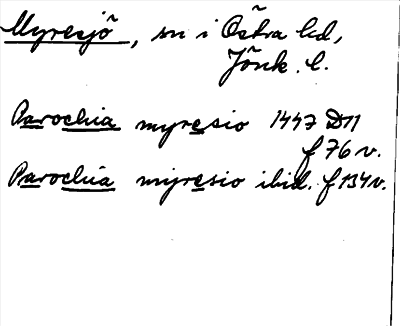 Myresjö, sn i Östra hd,
Jönk. l.
Parochia myresio 1447 D11
f 76 v.
Parochia mijresio ibid. f 134 v.